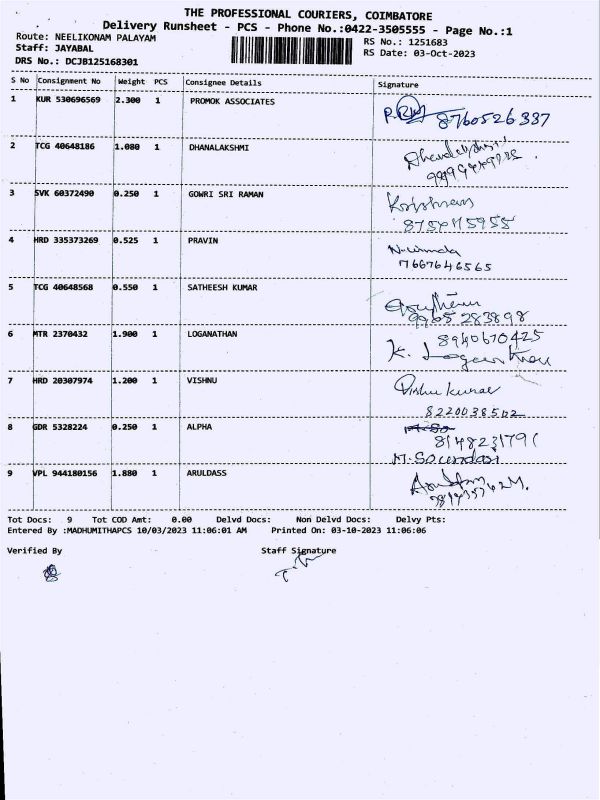 THE PROFESSIONAL COURIERS, COIMBATORE
Delivery Runsheet - PCS - Phone No.:0422-3505555 - Page No.:1
Route: NEELIKONAM PALAYAM
RS No.: 1251683
Staff: JAYABAL
RS Date: 03-Oct-2023
DRS No.: DCJB125168301
S No Consignment No Weight PCS Consignee Details Signature
1 KUR 530696569 2.300 1 PROMOK ASSOCIATES
8760526337
2 TCG 40648186 1.080 1 DHANALAKSHMI
3 SVK 60372490 0.250 1 GOWRI SRI RAMAN
Krishnan
4 HRD 335373269 0.525 1 PRAVIN
7667646565
5 TCG 40648568 0.550 1 SATHEESH KUMAR
9965283898
6 MTR 2370432 1.900 1 LOGANATHAN
8940670425
K. Loganathan
7 HRD 20307974 1.200 1 VISHNU
Vishnu kumar
8220038502
8 GDR 5328224 0.250 1 ALPHA
8148231791
M. Soundari
9 VPL 944180156 1.880 1 ARULDASS
Tot Docs: 9 Tot COD Amt: 0.00 Delvd Docs: Non Delvd Docs: Delvy Pts:
Entered By :MADHUMITHAPCS 10/03/2023 11:06:01 AM Printed On: 03-10-2023 11:06:06
Verified By Staff Signature